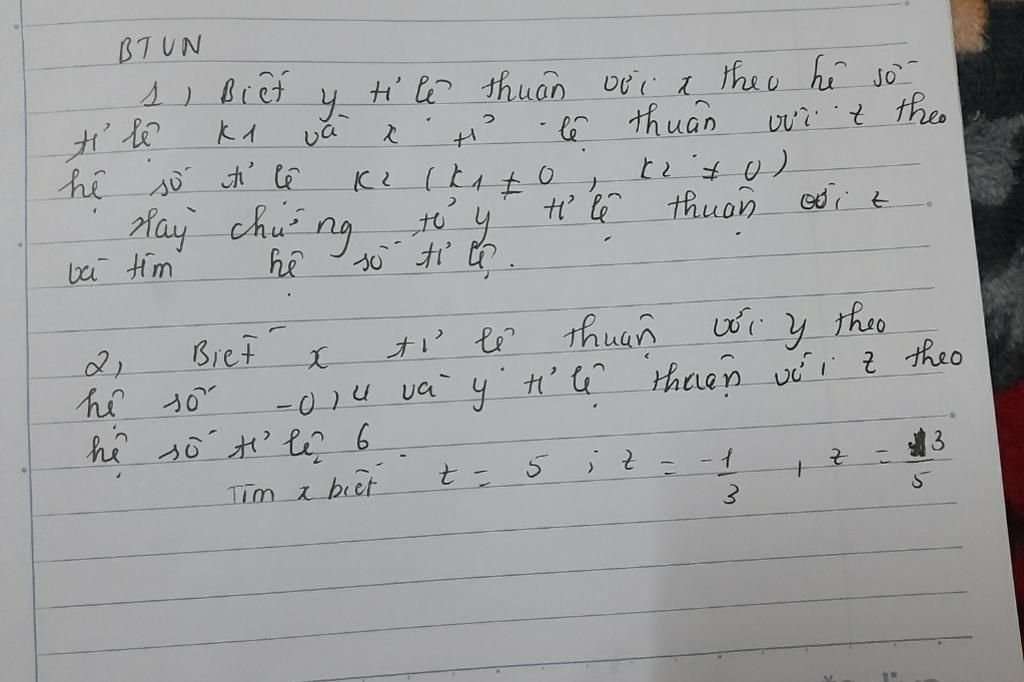 BTVN
1, Biết y tỉ lê thuân với x theo hê số
tỉ lệ k1 và x tỉ lệ thuân với z theo
hệ số tỉ lê k2 (k1 ≠ 0, k2 ≠ 0)
Hãy chứng tỏ y tỉ lệ thuận với z
và tìm hệ số tỉ lệ.
2, Biết x tỉ lê thuận với y theo
hệ số -0,4 và y tỉ lệ thuận với z theo
hệ số tỉ lệ 6.
Tìm x biết z = 5 ; z = -1/3 , z = 3/5